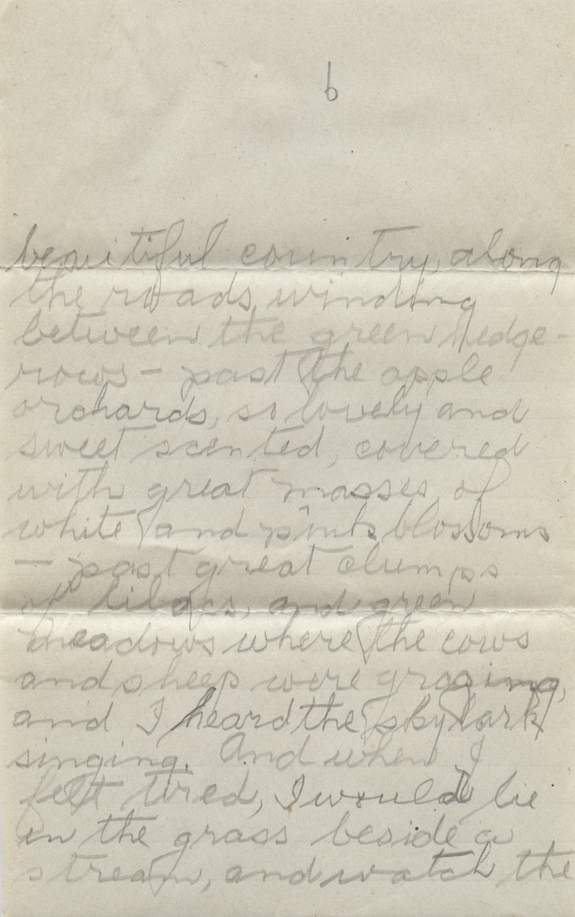 6
beautiful country, along
the roads, winding
between the green hedge-
rows - past the apple
orchards, so lovely and
sweet scented, covered
with great masses of
white and pink blossoms
- past great clumps
of lilacs, and green
meadows where the cows
and sheep were grazing,
and I heard the skylark
singing. And when I
felt tired, I would lie
in the grass beside a
stream, and watch the